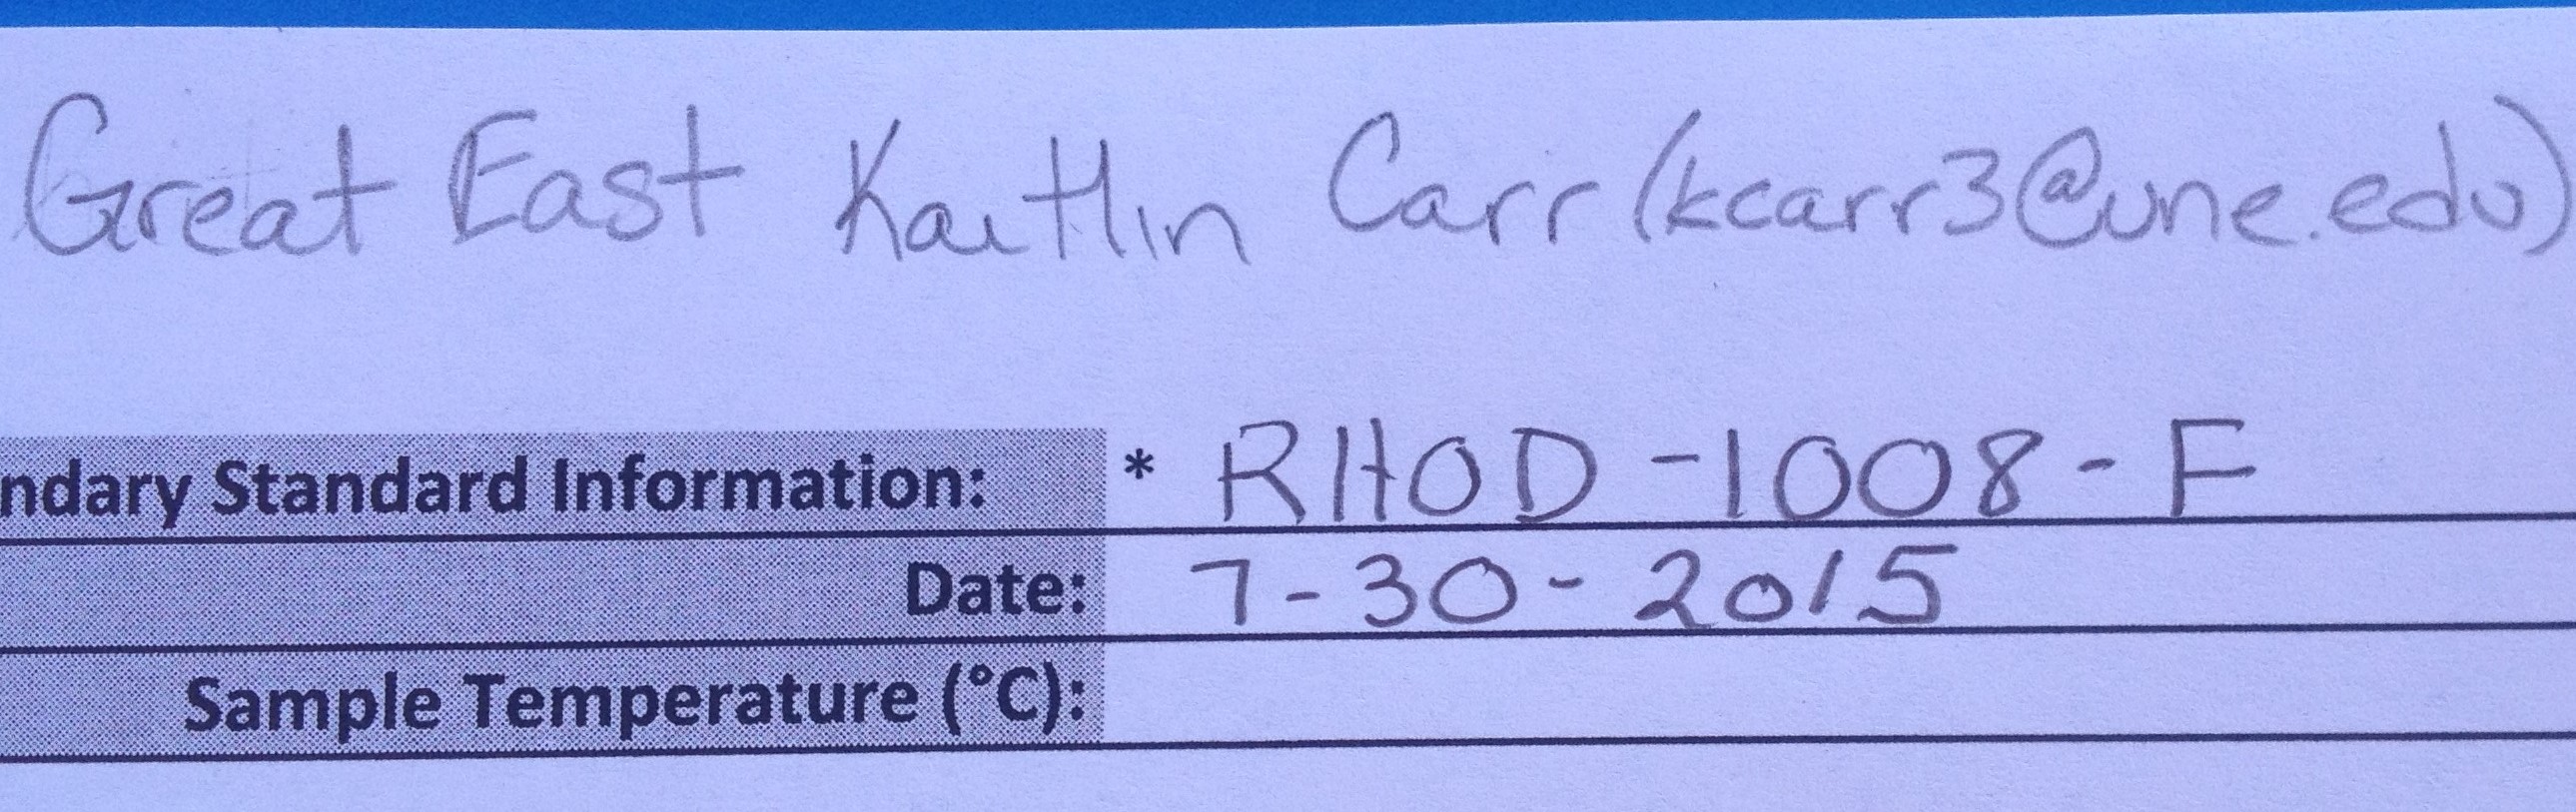 Great East Kaitlin Carr (kcarr3@une.edu)
ndary Standard Information: * RHOD-1008-F
Date: 7-30-2015
Sample Temperature (°C):